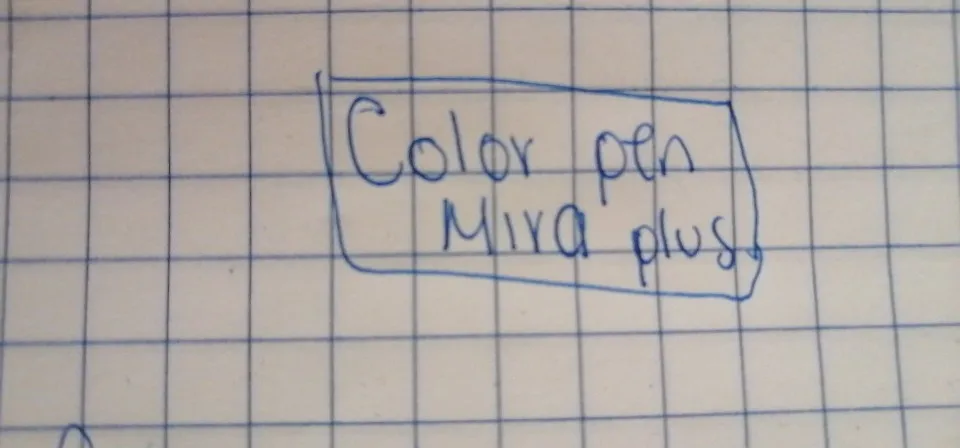 Color pen
Mira plus